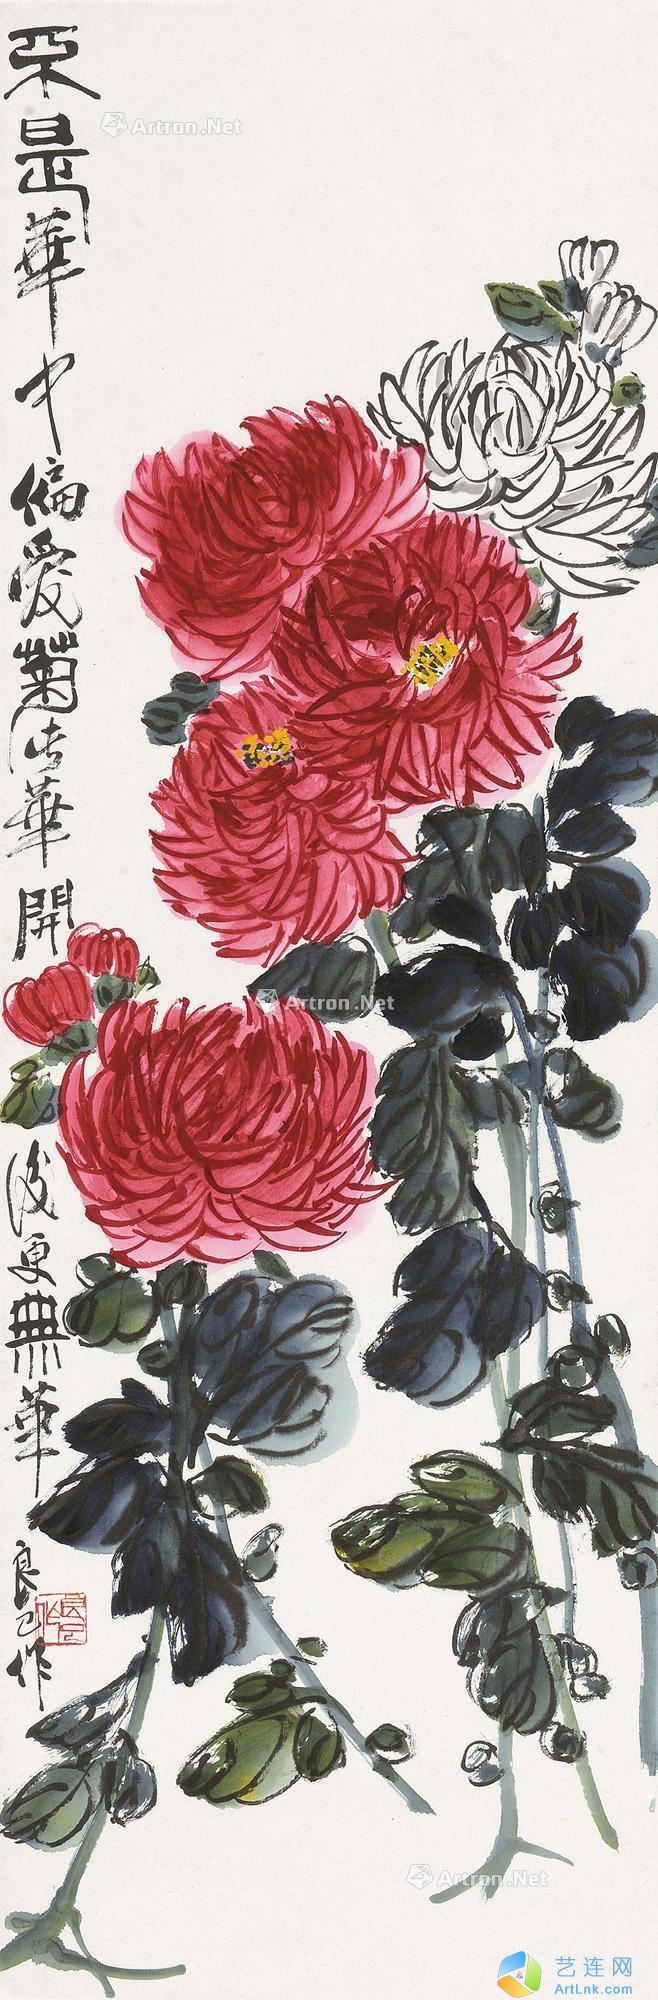 不是華中偏爱菊此華開後更無華
良已作
良已作
Artron.Net
Artron.Net
Artron.Net
艺连网
ArtLnk.com